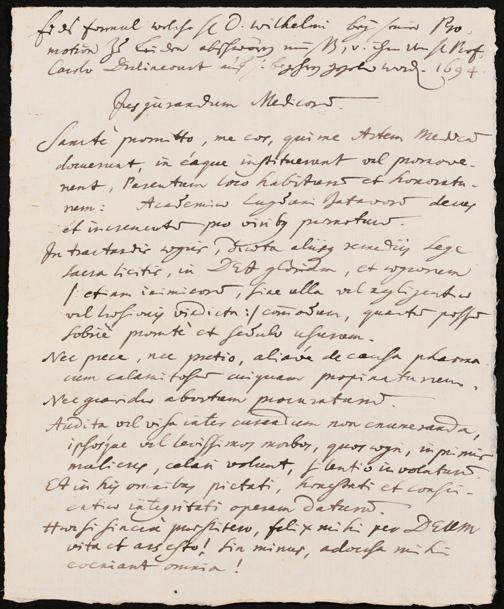 formul welche H. D. Wilhelmi bey seiner Pro,
motion Zŭ Leiden
Carolo Drelincourt 1694.
Jusjurandum Medicorū.
Sanctè promitto, me eos, qui me Artem Medicā
docuerunt, in eaque instituerunt vel promove-
runt, Parentum loco habiturū et honoratu-
rum: Academiae Lugduni Batavorū decus
et incrementū pro virib9 promoturū.
In tractandis aegris, diaeta aliisq remediis Lege
sacra licitis, in DEI gloriam, et aegrorum
/: etiam inimicorū, sine ulla vel negligentiae
vel vindicta :/ com̄odum, quantū possū
sobriè promtè et sedulo usurum.
Nec prece, nec pretio, aliave de causa pharma
cum calamitosū cuiquam propinaturum.
Nec gravidis abortum procuraturū.
Audita vel visa inter curandum non enumeranda,
ipsosque vel levissimos morbos, quos aegri, inprimis
mulieres, celari volunt, silentio involuturū.
Et in his omnibus pietati, honestati et consci-
entiae integritati operam daturū.
Haec si sincerè praestitero, felix mihi per DEUM
vita et ars esto! Sin minus, adversa mihi
eveniant omnia!